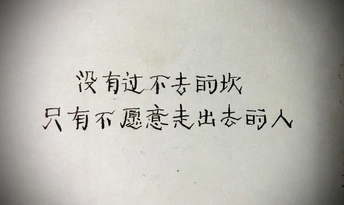 没有过不去的坎
只有不愿意走出去的人